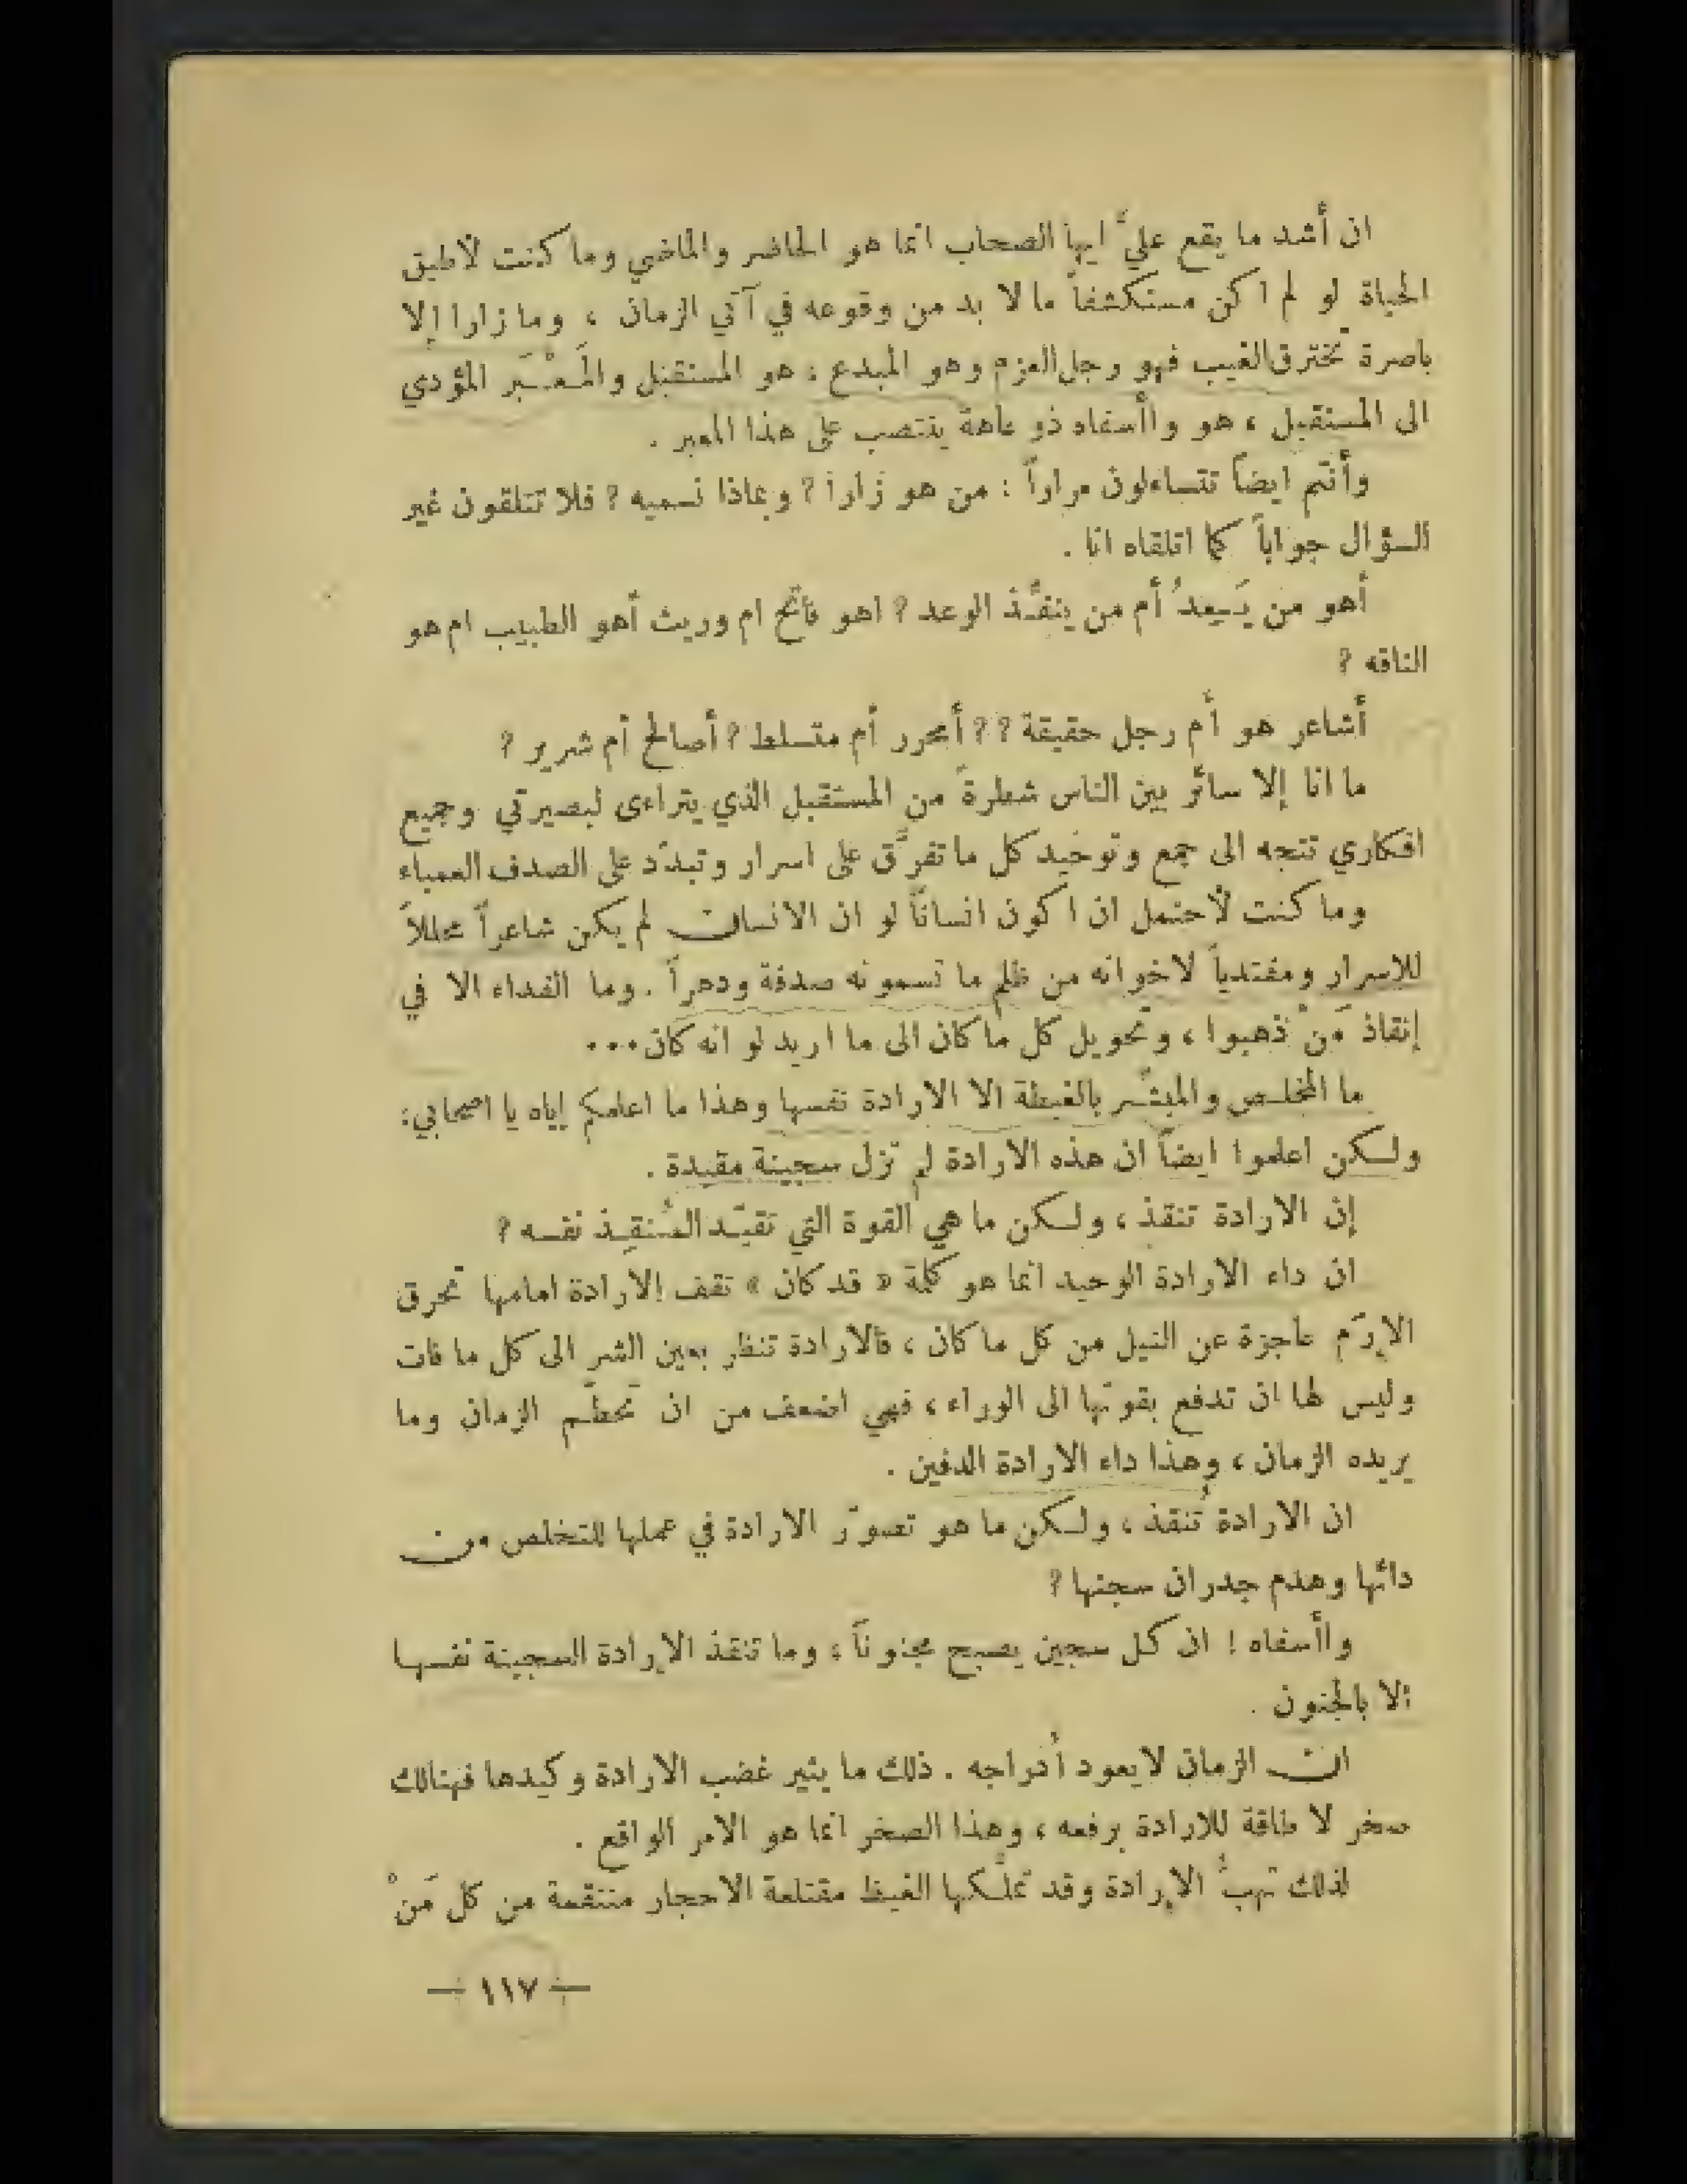 ان أشد ما يقع عليَّ ايها الصحاب انما هو الحاضر والماضي وما كنت لأطيق
الحياة لو لم اكن مستكشفاً ما لا بد من وقوعه في آتي الزمان ، وما زارا إلا
باصرة تخترق الغيب فهو رجل العزم وهو المبدع ، هو المستقبل والمَعْبَر المؤدي
الى المستقبل ، هو واأسفاه ذو عاهة ينتصب على هذا المعبر .
وأنتم ايضاً تتساءلون مراراً : من هو زارا ? وبماذا نسميه ? فلا تتلقون غير
السؤال جواباً كما اتلقاه انا .
أهو من يَعِدُ أم من ينفِّذ الوعد ? اهو فاتح ام وريث أهو الطبيب ام هو
الناقه ?
أشاعر هو أم رجل حقيقة ?? أمحرر أم متسلط ? أصالح أم شرير ?
ما انا إلا سائر بين الناس شطرة من المستقبل الذي يتراءى لبصيرتي وجميع
افكاري تتجه الى جمع وتوحيد كل ما تفرَّق على اسرار وتبدّد على الصدف العمياء
وما كنت لأحتمل ان اكون انساناً لو ان الانسان لم يكن شاعراً محللاً
للاسرار ومفتدياً لاخوانه من ظلم ما تسمونه صدفة ودهراً . وما الفداء الا في
إنقاذ مَنْ ذهبوا ، وتحويل كل ما كان الى ما اريد لو انه كان ...
ما المخلص والمبشّر بالغبطة الا الارادة نفسها وهذا ما اعلمكم إياه يا اصحابي :
ولكن اعلموا ايضاً ان هذه الارادة لم تزل سجينة مقيدة .
إن الارادة تنقذ ، ولكن ما هي القوة التي تقيّد المُنقِذ نفسه ?
ان داء الارادة الوحيد انما هو كلمة « قد كان » تقف الارادة امامها تحرق
الإرّم عاجزة عن النيل من كل ما كان ، فالارادة تنظر بعين الشر الى كل ما فات
وليس لها ان تدفع بقوتها الى الوراء ، فهي اضعف من ان تحطّم الزمان وما
يريده الزمان ، وهذا داء الارادة الدفين .
ان الارادة تُنقذ ، ولكن ما هو تصوّر الارادة في عملها للتخلص من
دائها وهدم جدران سجنها ?
واأسفاه ! ان كل سجين يصبح مجنوناً ، وما تنقذ الإرادة السجينة نفسها
إلا بالجنون .
ان الزمان لا يعود أدراجه . ذلك ما يثير غضب الارادة وكيدها فهنالك
صخر لا طاقة للارادة برفعه ، وهذا الصخر انما هو الامر الواقع .
لذلك تهبُّ الإرادة وقد تملّكها الغيظ مقتلعة الاحجار منتقمة من كل مَنْ
— ١١٧ —